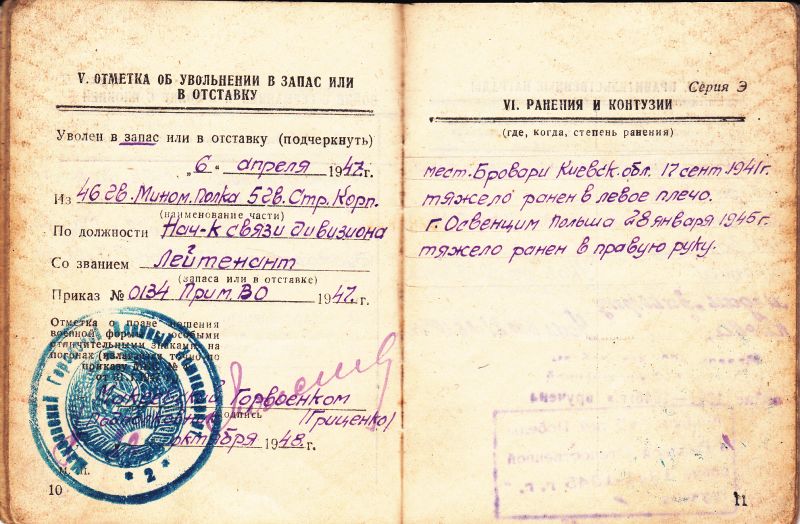 V. ОТМЕТКА ОБ УВОЛЬНЕНИИ В ЗАПАС ИЛИ
В ОТСТАВКУ
Уволен в запас или в отставку (подчеркнуть)
„6“ апреля 1947 г.
Из 46 гв. Мином. Полка 5 гв. Стр. Корп.
(наименование части)
По должности Нач-к связи дивизиона
Со званием Лейтенант
(запаса или в отставке)
Приказ № 0134 Прим. ВО 1947 г.
Отметка о праве ношения
военной формы с особыми
отличительными знаками на
погонах (налагается только по
приказу
Макеевский Горвоенком
Подполковник (Гриценко)
подпись
октября 1948 г.
М. П.
10
2
Серия Э
VI. РАНЕНИЯ И КОНТУЗИИ
(где, когда, степень ранения)
мест. Бровари Киевск. обл. 17 сент 1941 г.
тяжело ранен в левое плечо.
г. Освенцим Польша 28 января 1945 г.
тяжело ранен в правую руку.
11